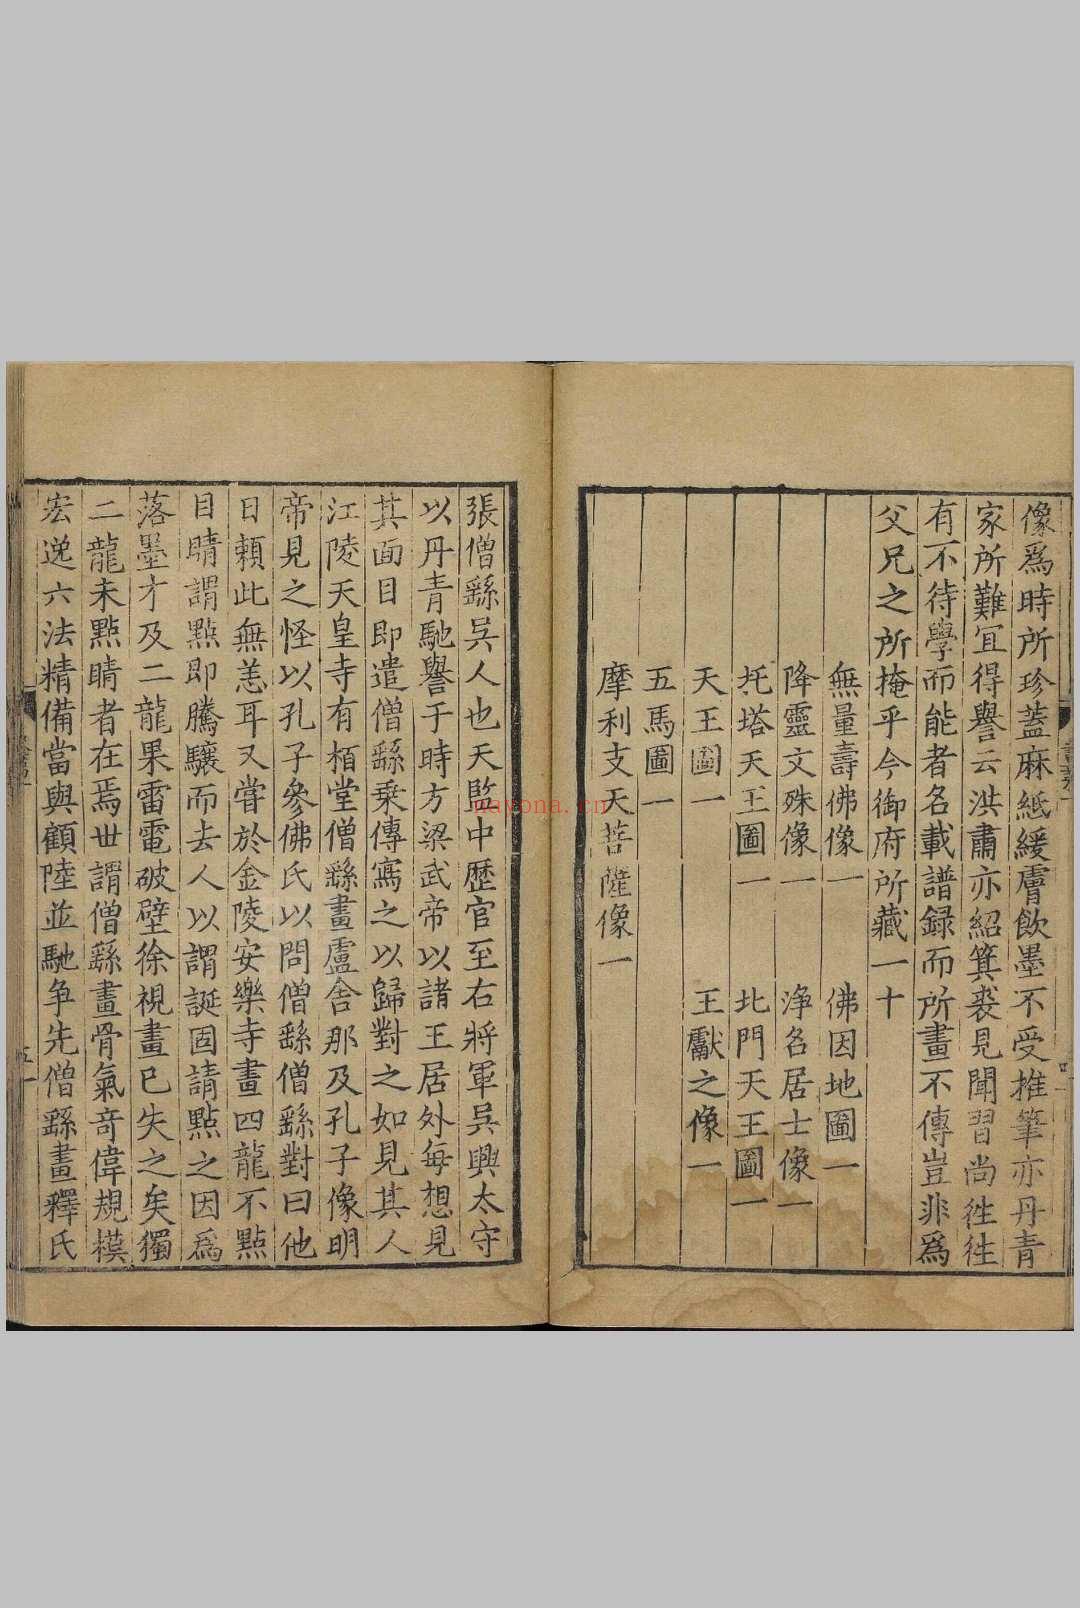 像爲時所珍蓋麻紙緩膚飲墨不受推筆亦丹青
家所難冝得譽云洪肅亦紹箕裘見聞習尚徃徃
有不待學而能者名載譜録而所畫不傳豈非爲
父兄之所掩乎今御府所藏一十
無量壽佛像一 佛因地圖一
降靈文殊像一 净名居士像一
托塔天王圖一 北門天王圖一
天王圖一 王獻之像一
五馬圖一
摩利支天菩薩像一
張僧繇吳人也天監中歷官至右將軍吳興太守
以丹青馳譽于時方梁武帝以諸王居外每想見
其面目即遣僧繇乗傳寫之以歸對之如見其人
江陵天皇寺有栢堂僧繇畫盧舎那及孔子像明
帝見之怪以孔子參佛氏以問僧繇僧繇對曰他
日頼此無恙耳又嘗於金陵安樂寺畫四龍不點
目睛謂點即騰驤而去人以謂誕固請點之因爲
落墨才及二龍果雷電破壁徐視畫已失之矣獨
二龍未點睛者在焉世謂僧繇畫骨氣奇偉規模
宏逸六法精備當與顧陸並馳争先僧繇畫釋氏
nayona.cn